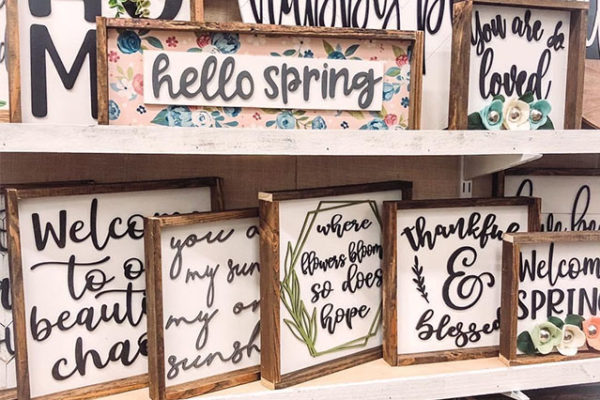 M
hello spring
You are so
loved
Welcom
to o
beauti
chao
you a
my sun
my on
sunsh
where
flowers bloom
so does
hope
thankful
&
blessed
Welcom
SPRING